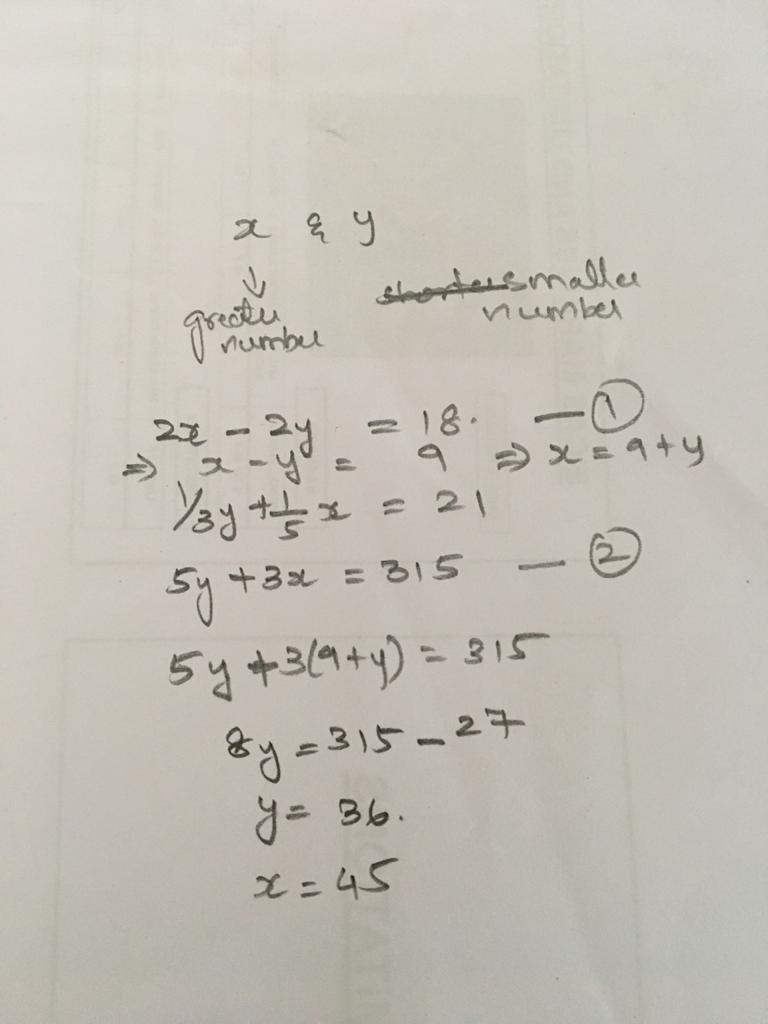 x & y
↓
greater number
smaller number
2x - 2y = 18. — ①
⇒ x - y = 9 ⇒ x = 9 + y
1/3y + 1/5 x = 21
5y + 3x = 315 — ②
5y + 3(9+y) = 315
8y = 315 - 27
y = 36.
x = 45